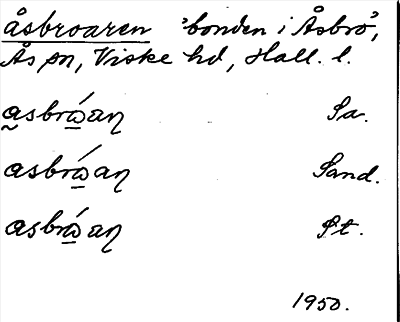 åsbroaren 'bonden i Åsbro',
Ås sn, Viske hd, Hall. l.
asbrώaɳ Sa.
asbrώaɳ Sand.
asbrώaɳ St.
1950.